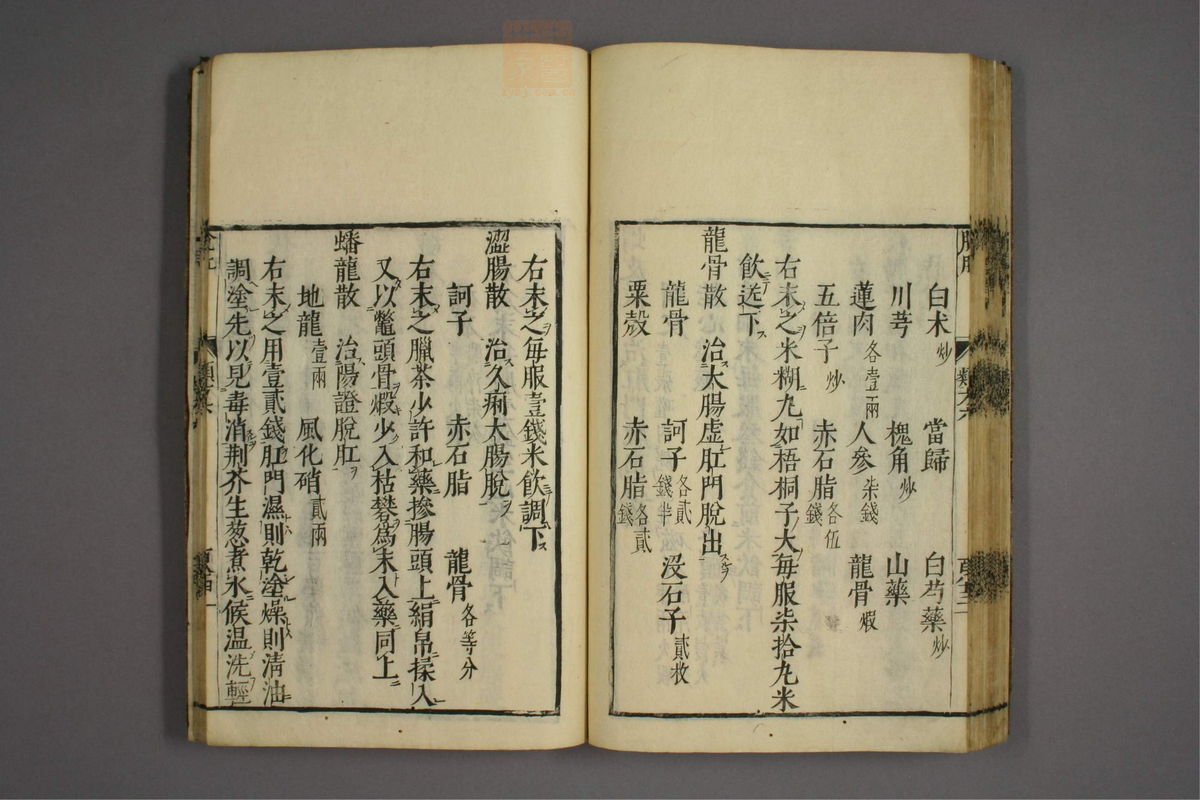 白朮炒　當歸　白芍藥炒
川芎　槐角炒　山藥
蓮肉各壹兩　人參柒錢　龍骨煅
五倍子炒　赤石脂各伍錢
右末之米糊丸如梧桐子大毎服柒拾丸米
飲送下
龍骨散　治大腸虚肛門脱出
龍骨　訶子各貳錢半　没石子貳枚
粟殻　赤石脂各貳錢
右末之毎服壹錢米飲調下
澀腸散　治久痢大腸脱
訶子　赤石脂　龍骨各等分
右末之臘茶少許和藥摻腸頭上絹帛揉入
又以鱉頭骨煅少入枯礬爲末入藥同上
蟠龍散　治陽證脱肛
地龍壹兩　風化硝貳兩
右末之用壹貳錢肛門濕則乾塗燥則清油
調塗先以見毒消荆芥生葱煮水候温洗輕